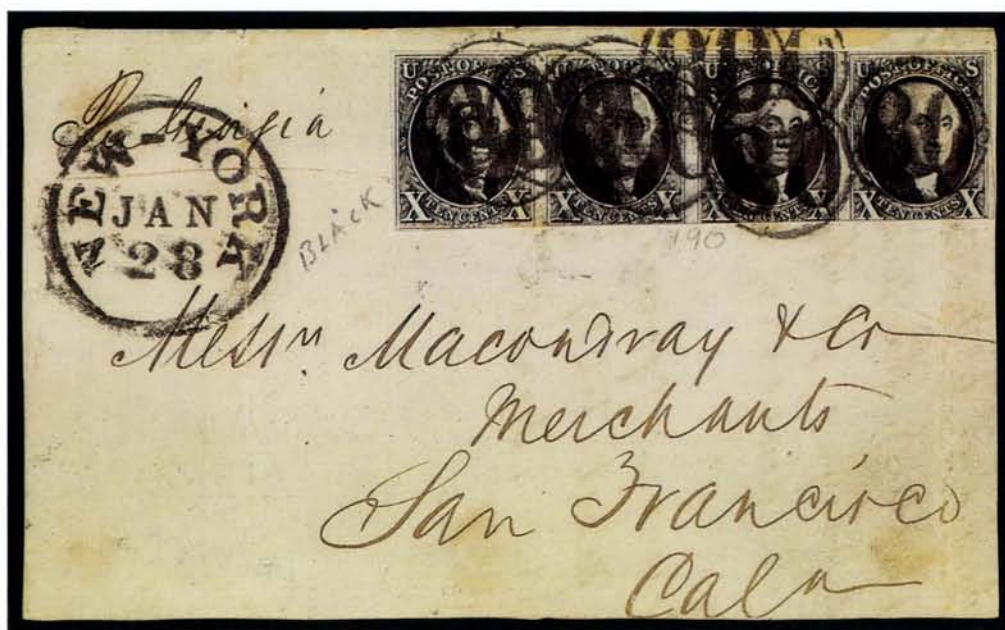 Per Georgia
NEW-YORK
JAN
28
BLACK
U POST OFFICE S
X TEN CENTS X
U POST OFFICE S
X TEN CENTS X
U POST OFFICE S
X TEN CENTS X
U POST OFFICE S
X TEN CENTS X
190
Messrs. Macondray & Co
Merchants
San Francisco
Cala